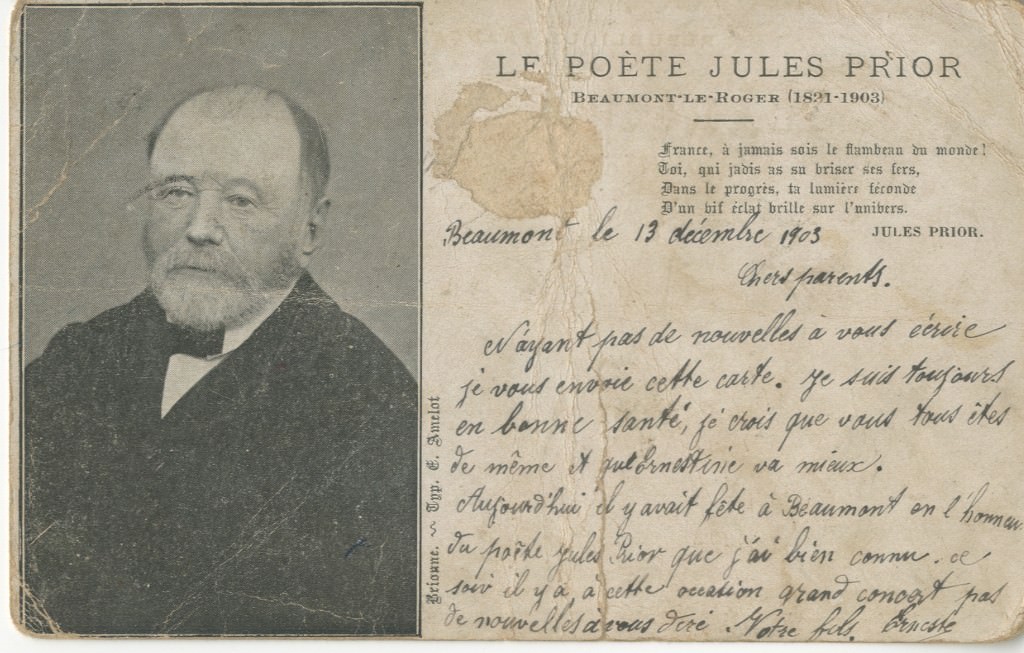 LE POÈTE JULES PRIOR
BEAUMONT-LE-ROGER (1821-1903)
France, à jamais sois le flambeau du monde!
Toi, qui jadis as su briser ses fers,
Dans le progrès, ta lumière féconde
D'un vif éclat brille sur l'univers.
JULES PRIOR.
Beaumont le 13 décembre 1903
Chers parents.
N'ayant pas de nouvelles à vous écrire
je vous envoie cette carte. Je suis toujours
en bonne santé, je crois que vous tous êtes
de même et que Ernestine va mieux.
Aujourd'hui il y avait fête à Beaumont en l'honneur
du poête Jules Prior que j'ai bien connu. ce
soir il y a à cette occasion grand concert pas
de nouvelles a vous dire. Votre fils. Ernest
Brionne. ~ Typ. E. Amelot